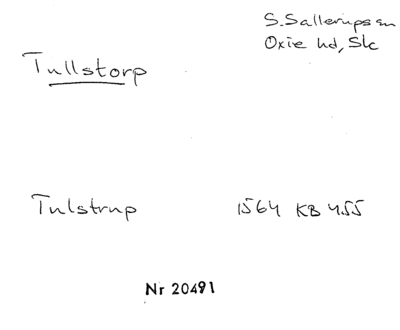 S. Sallerups sn
Oxie hd, Sk
Tullstorp
Tulstrup 1564 KB 455
Nr 20491